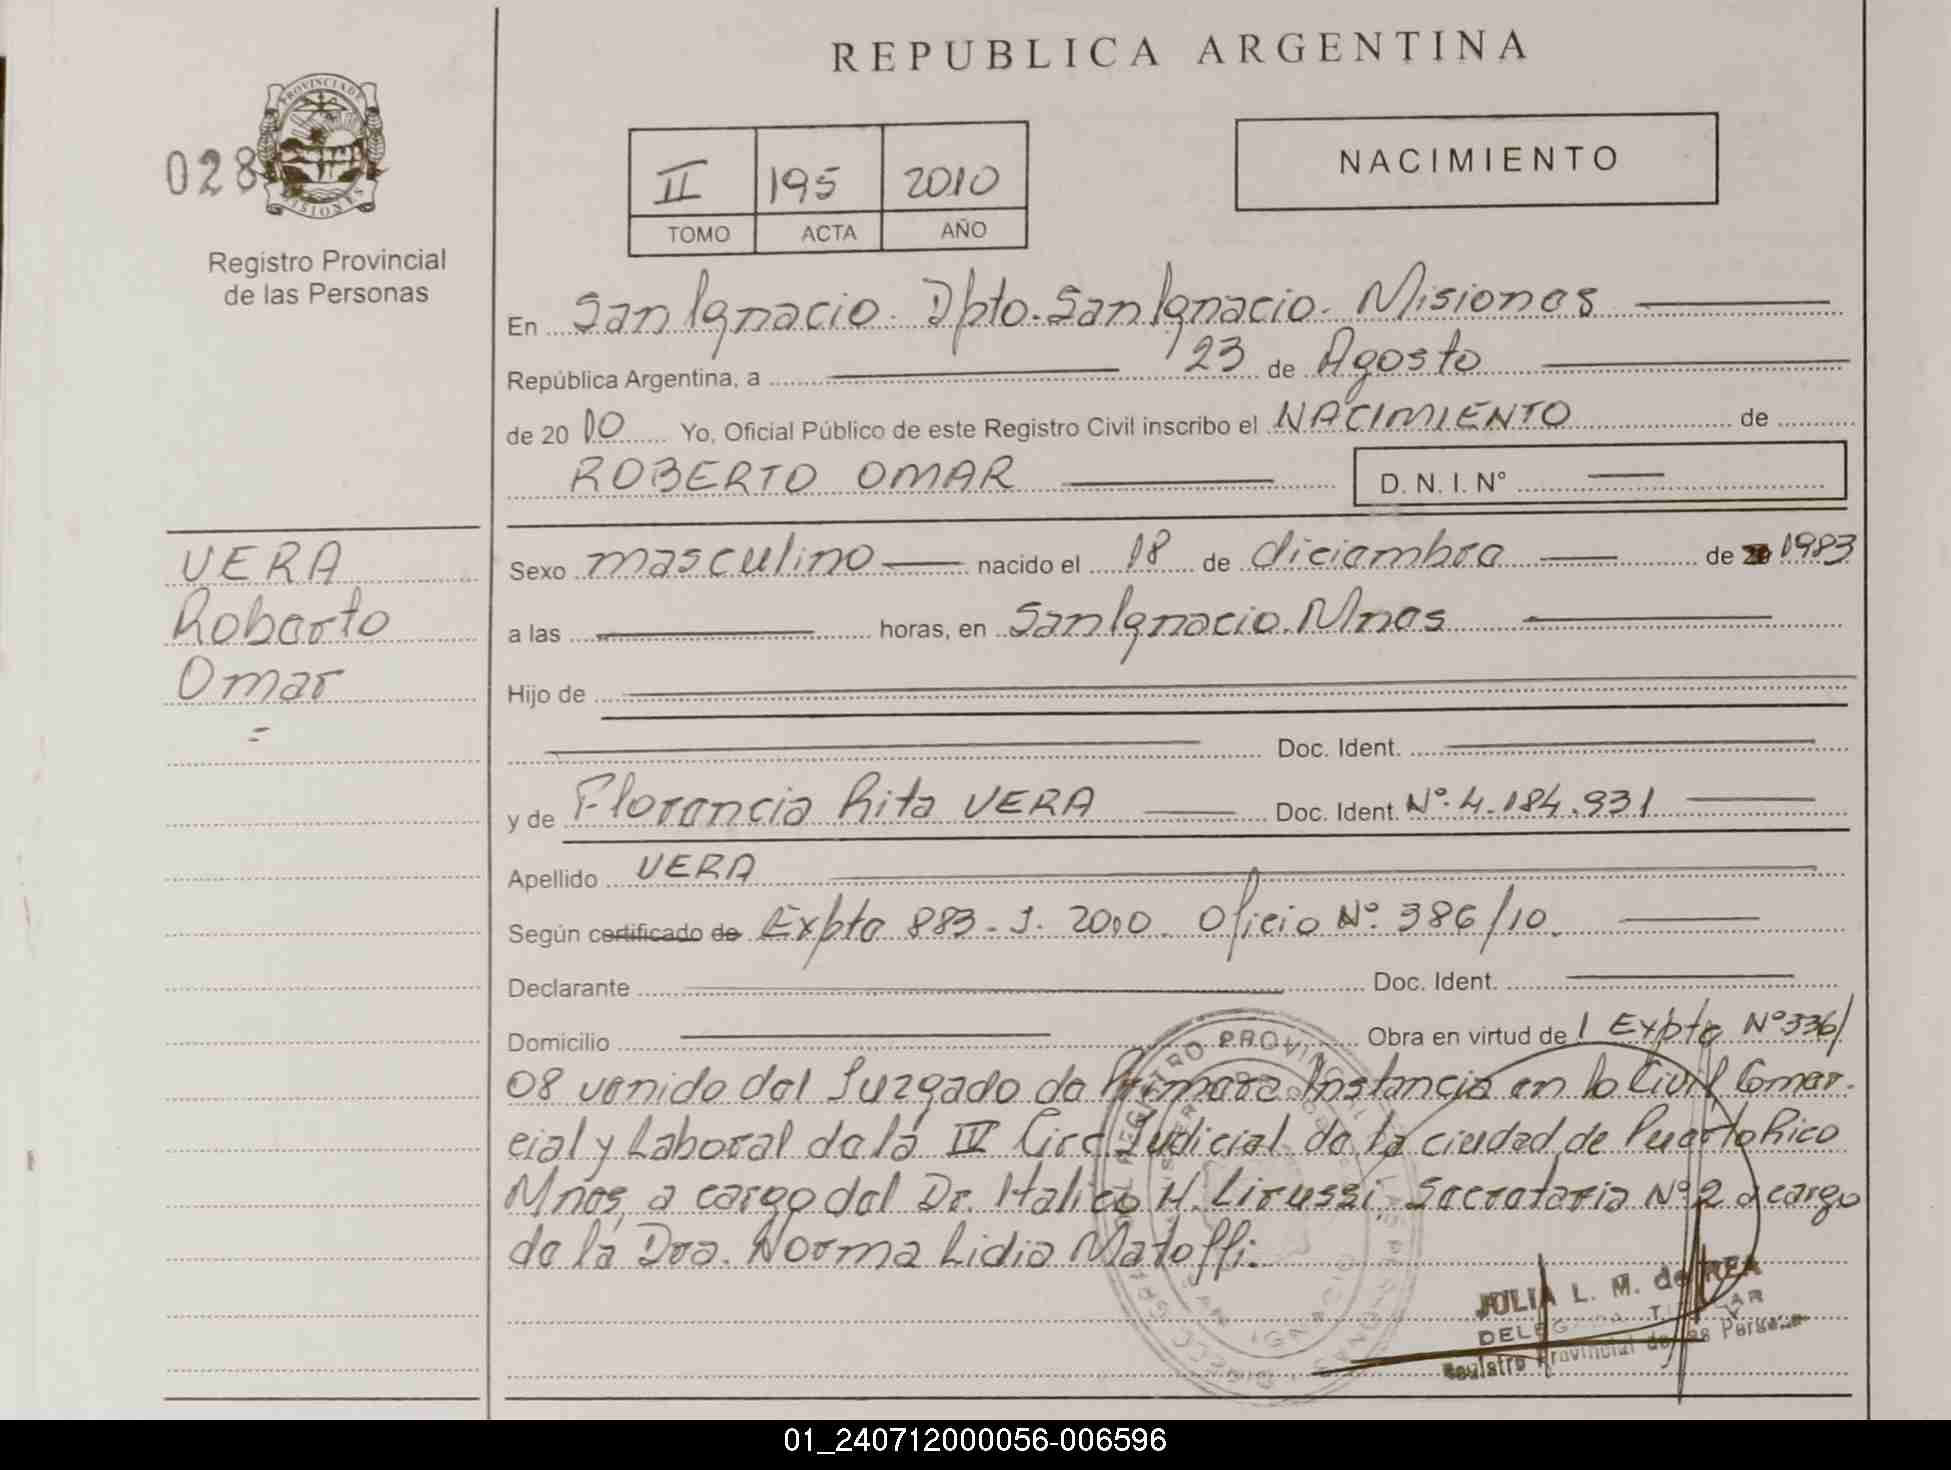 REPUBLICA ARGENTINA
PROVINCIA DE
MISIONES
028
Registro Provincial
de las Personas
II 195 2010
TOMO ACTA AÑO
NACIMIENTO
En San Ignacio. Dpto. San Ignacio. Misiones
República Argentina, a 23 de Agosto
de 20 10 Yo, Oficial Público de este Registro Civil inscribo el NACIMIENTO de
ROBERTO OMAR D. N. I. N°
VERA
Roberto
Omar
=
Sexo masculino nacido el 18 de diciembre de 1983
a las horas, en San Ignacio. Mnes
Hijo de
Doc. Ident.
y de Florencia Rita VERA Doc. Ident. N°. 4.184.931
Apellido VERA
Según certificado de Expte 883. J. 2010. Oficio N°. 386/10.
Declarante Doc. Ident.
Domicilio Obra en virtud de 1 Expte N°336/
08 venido del Juzgado de Primera Instancia en lo Civil Comer.
cial y Laboral de la IV Circ. Judicial de la ciudad de Puerto Rico
Mnes, a cargo del Dr. Italico H. Lirussi, Secretaria N° 2 a cargo
de la Dra. Norma Lidia Matoffi.
REGISTRO PROVINCIAL DE LAS PERSONAS
SAN IGNACIO
JULIA L. M. de REA
DELEGADA TITULAR
Registro Provincial de las Personas
01_240712000056-006596